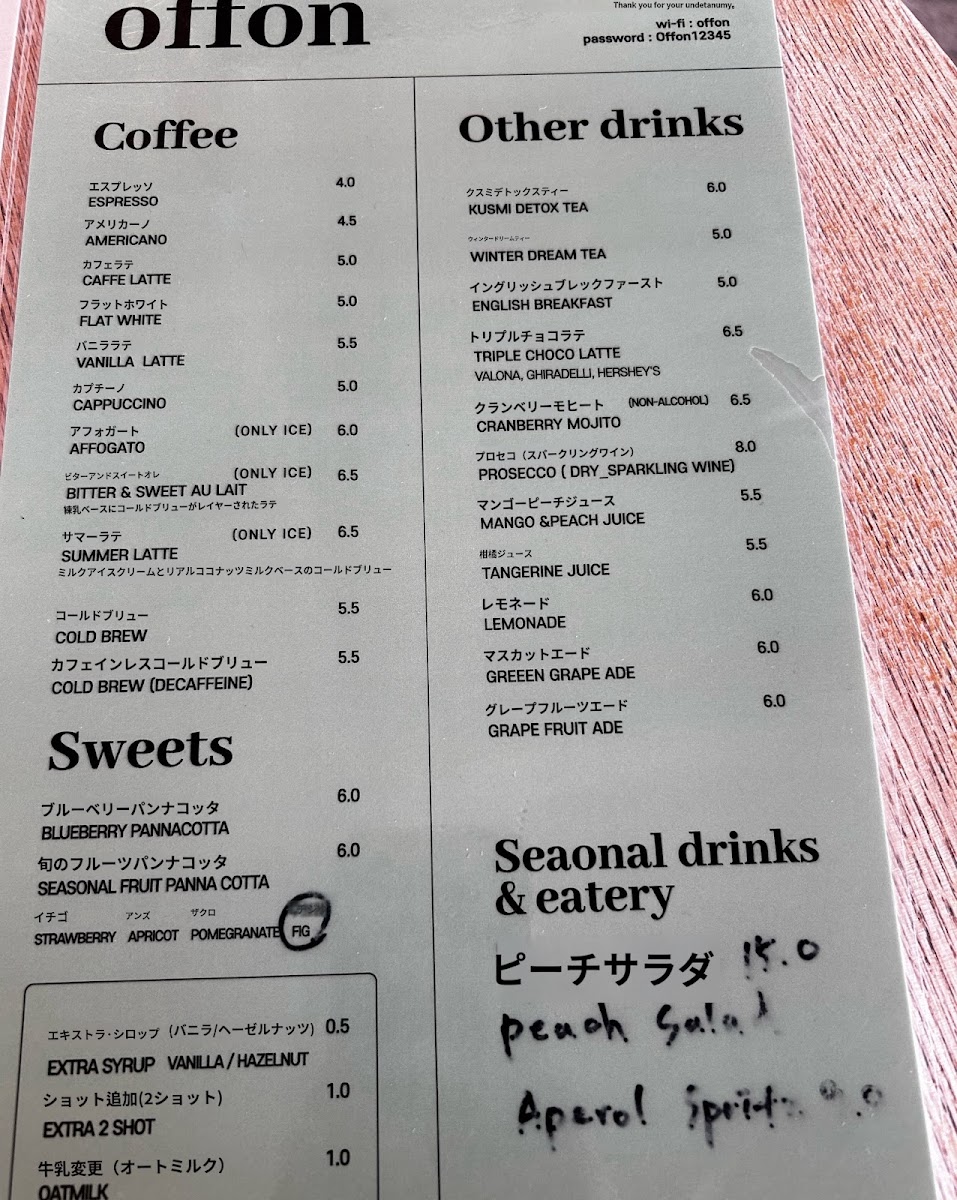 offon
Thank you for your undetanumy。
wi-fi : offon
password : Offon12345
Coffee
エスプレッソ 4.0
ESPRESSO
アメリカーノ 4.5
AMERICANO
カフェラテ 5.0
CAFFE LATTE
フラットホワイト 5.0
FLAT WHITE
バニララテ 5.5
VANILLA LATTE
カプチーノ 5.0
CAPPUCCINO
アフォガート (ONLY ICE) 6.0
AFFOGATO
ビターアンドスイートオレ (ONLY ICE) 6.5
BITTER & SWEET AU LAIT
練乳ベースにコールドブリューがレイヤーされたラテ
サマーラテ (ONLY ICE) 6.5
SUMMER LATTE
ミルクアイスクリームとリアルココナッツミルクベースのコールドブリュー
コールドブリュー 5.5
COLD BREW
カフェインレスコールドブリュー 5.5
COLD BREW (DECAFFEINE)
Sweets
ブルーベリーパンナコッタ 6.0
BLUEBERRY PANNACOTTA
旬のフルーツパンナコッタ 6.0
SEASONAL FRUIT PANNA COTTA
イチゴ アンズ ザクロ
STRAWBERRY APRICOT POMEGRANATE FIG
エキストラ・シロップ (バニラ/ヘーゼルナッツ) 0.5
EXTRA SYRUP VANILLA / HAZELNUT
ショット追加(2ショット) 1.0
EXTRA 2 SHOT
牛乳変更（オートミルク） 1.0
OATMILK
Other drinks
クスミデトックスティー 6.0
KUSMI DETOX TEA
ウィンタードリームティー 5.0
WINTER DREAM TEA
イングリッシュブレックファースト 5.0
ENGLISH BREAKFAST
トリプルチョコラテ 6.5
TRIPLE CHOCO LATTE
VALONA, GHIRADELLI, HERSHEY'S
クランベリーモヒート (NON-ALCOHOL) 6.5
CRANBERRY MOJITO
プロセコ（スパークリングワイン） 8.0
PROSECCO ( DRY_SPARKLING WINE)
マンゴーピーチジュース 5.5
MANGO &PEACH JUICE
柑橘ジュース 5.5
TANGERINE JUICE
レモネード 6.0
LEMONADE
マスカットエード 6.0
GREEEN GRAPE ADE
グレープフルーツエード 6.0
GRAPE FRUIT ADE
Seaonal drinks
& eatery
ピーチサラダ 15.0
peach Salad
Aperol Spritz